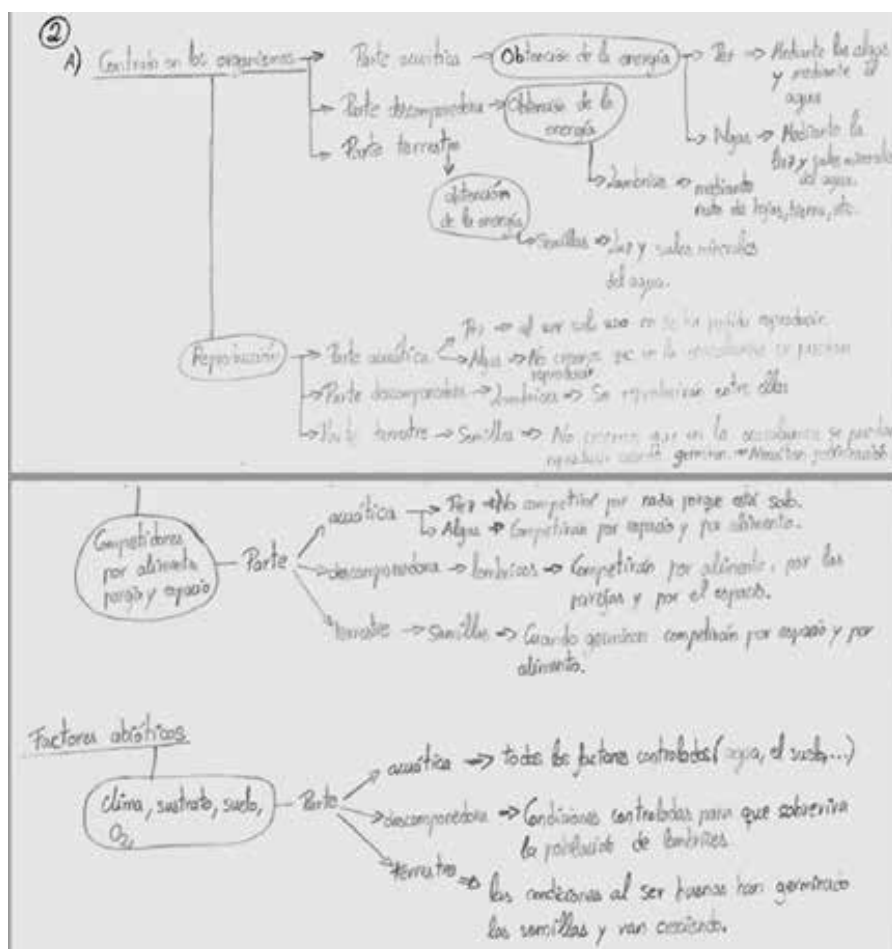 ②
A) Centrado en los organismos → Parte acuática → Obtención de la energía → Pez → Mediante las algas
y mediante el
agua
→ Algas → Mediante la
luz y sales minerales
del agua.
→ Parte descomponedora → Obtención de la
energía
→ Lombrices → mediante
resto de hojas, tierra, etc.
→ Parte terrestre
obtención
de la energía
→ Semillas → Luz y sales minerales
del agua.
Reproducción → Parte acuática → Pez → al ser solo uno no se ha podido reproducir.
→ Algas → No creemos que en la se puedan
reproducir
→ Parte descomponedora → Lombrices → Se reproducirán entre ellas
→ Parte terrestre → Semillas → No creemos que en la se puedan
reproducir germinan. → Necesitan polinización.
Competidores
por alimento
pareja y espacio
Parte
acuática → Pez → No competirá por nada porque está solo.
→ Algas → Competirán por espacio y por alimento.
descomponedora → lombrices → Competirán por alimento, por las
parejas y por el espacio.
terrestre → semillas → Cuando germinen competirán por espacio y por
alimento.
Factores abióticos
Clima, sustrato, suelo,
O₂,
Parte
acuática → todos los factores controlados (agua, el suelo,...)
descomponedora → Condiciones controladas para que sobreviva
la población de lombrices.
terrestre → las condiciones al ser buenas han germinado
las semillas y van creciendo.